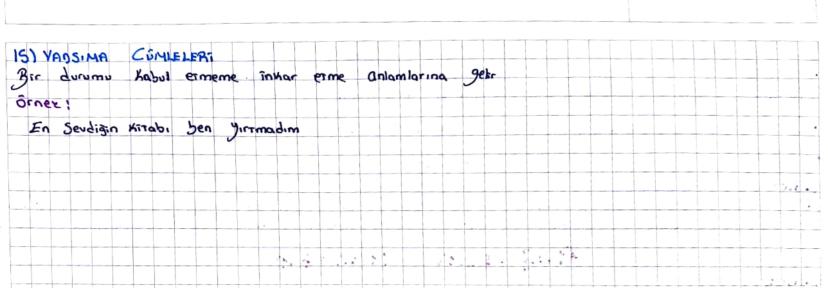 15) YADSIMA CÜMLELERİ
Bir durumu kabul etmeme inkar etme anlamlarına gelir
Örnek:
En Sevdiğin kitabı ben yırtmadım